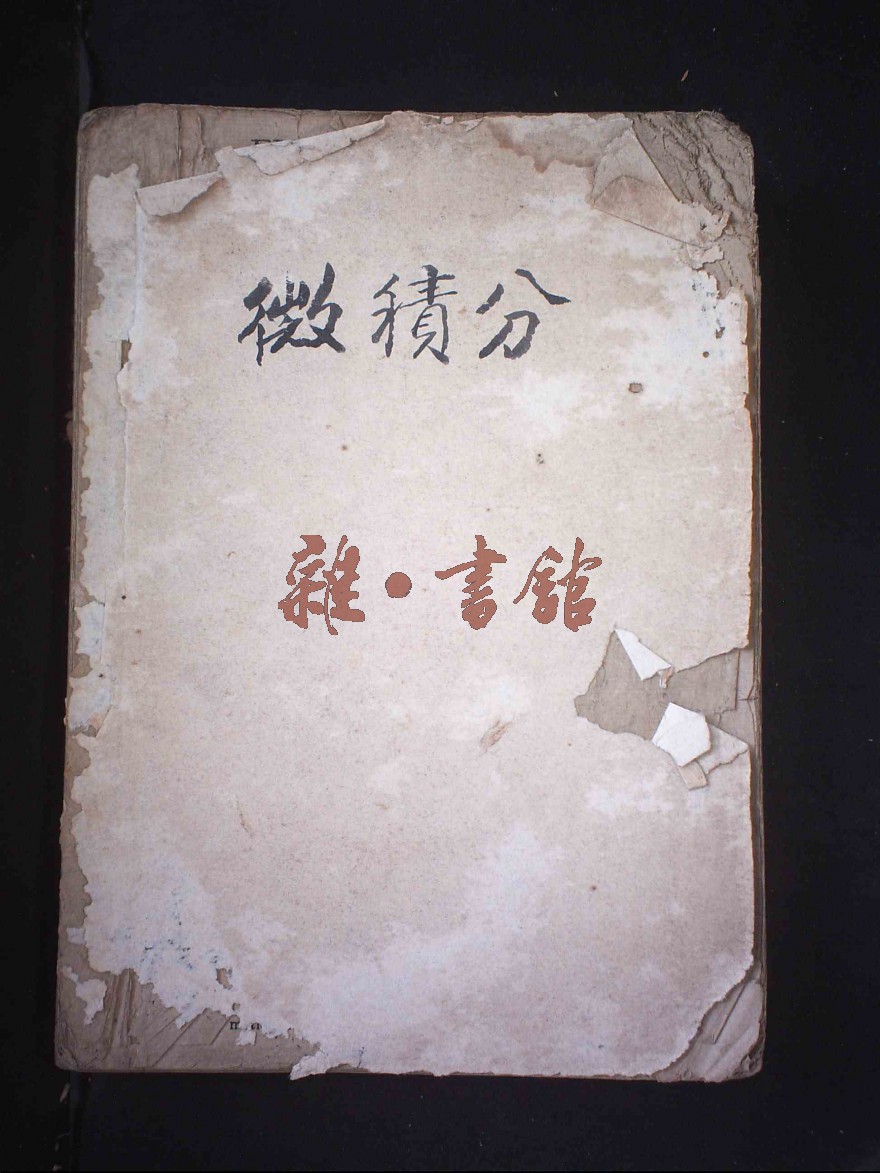 微積分
雜·書館